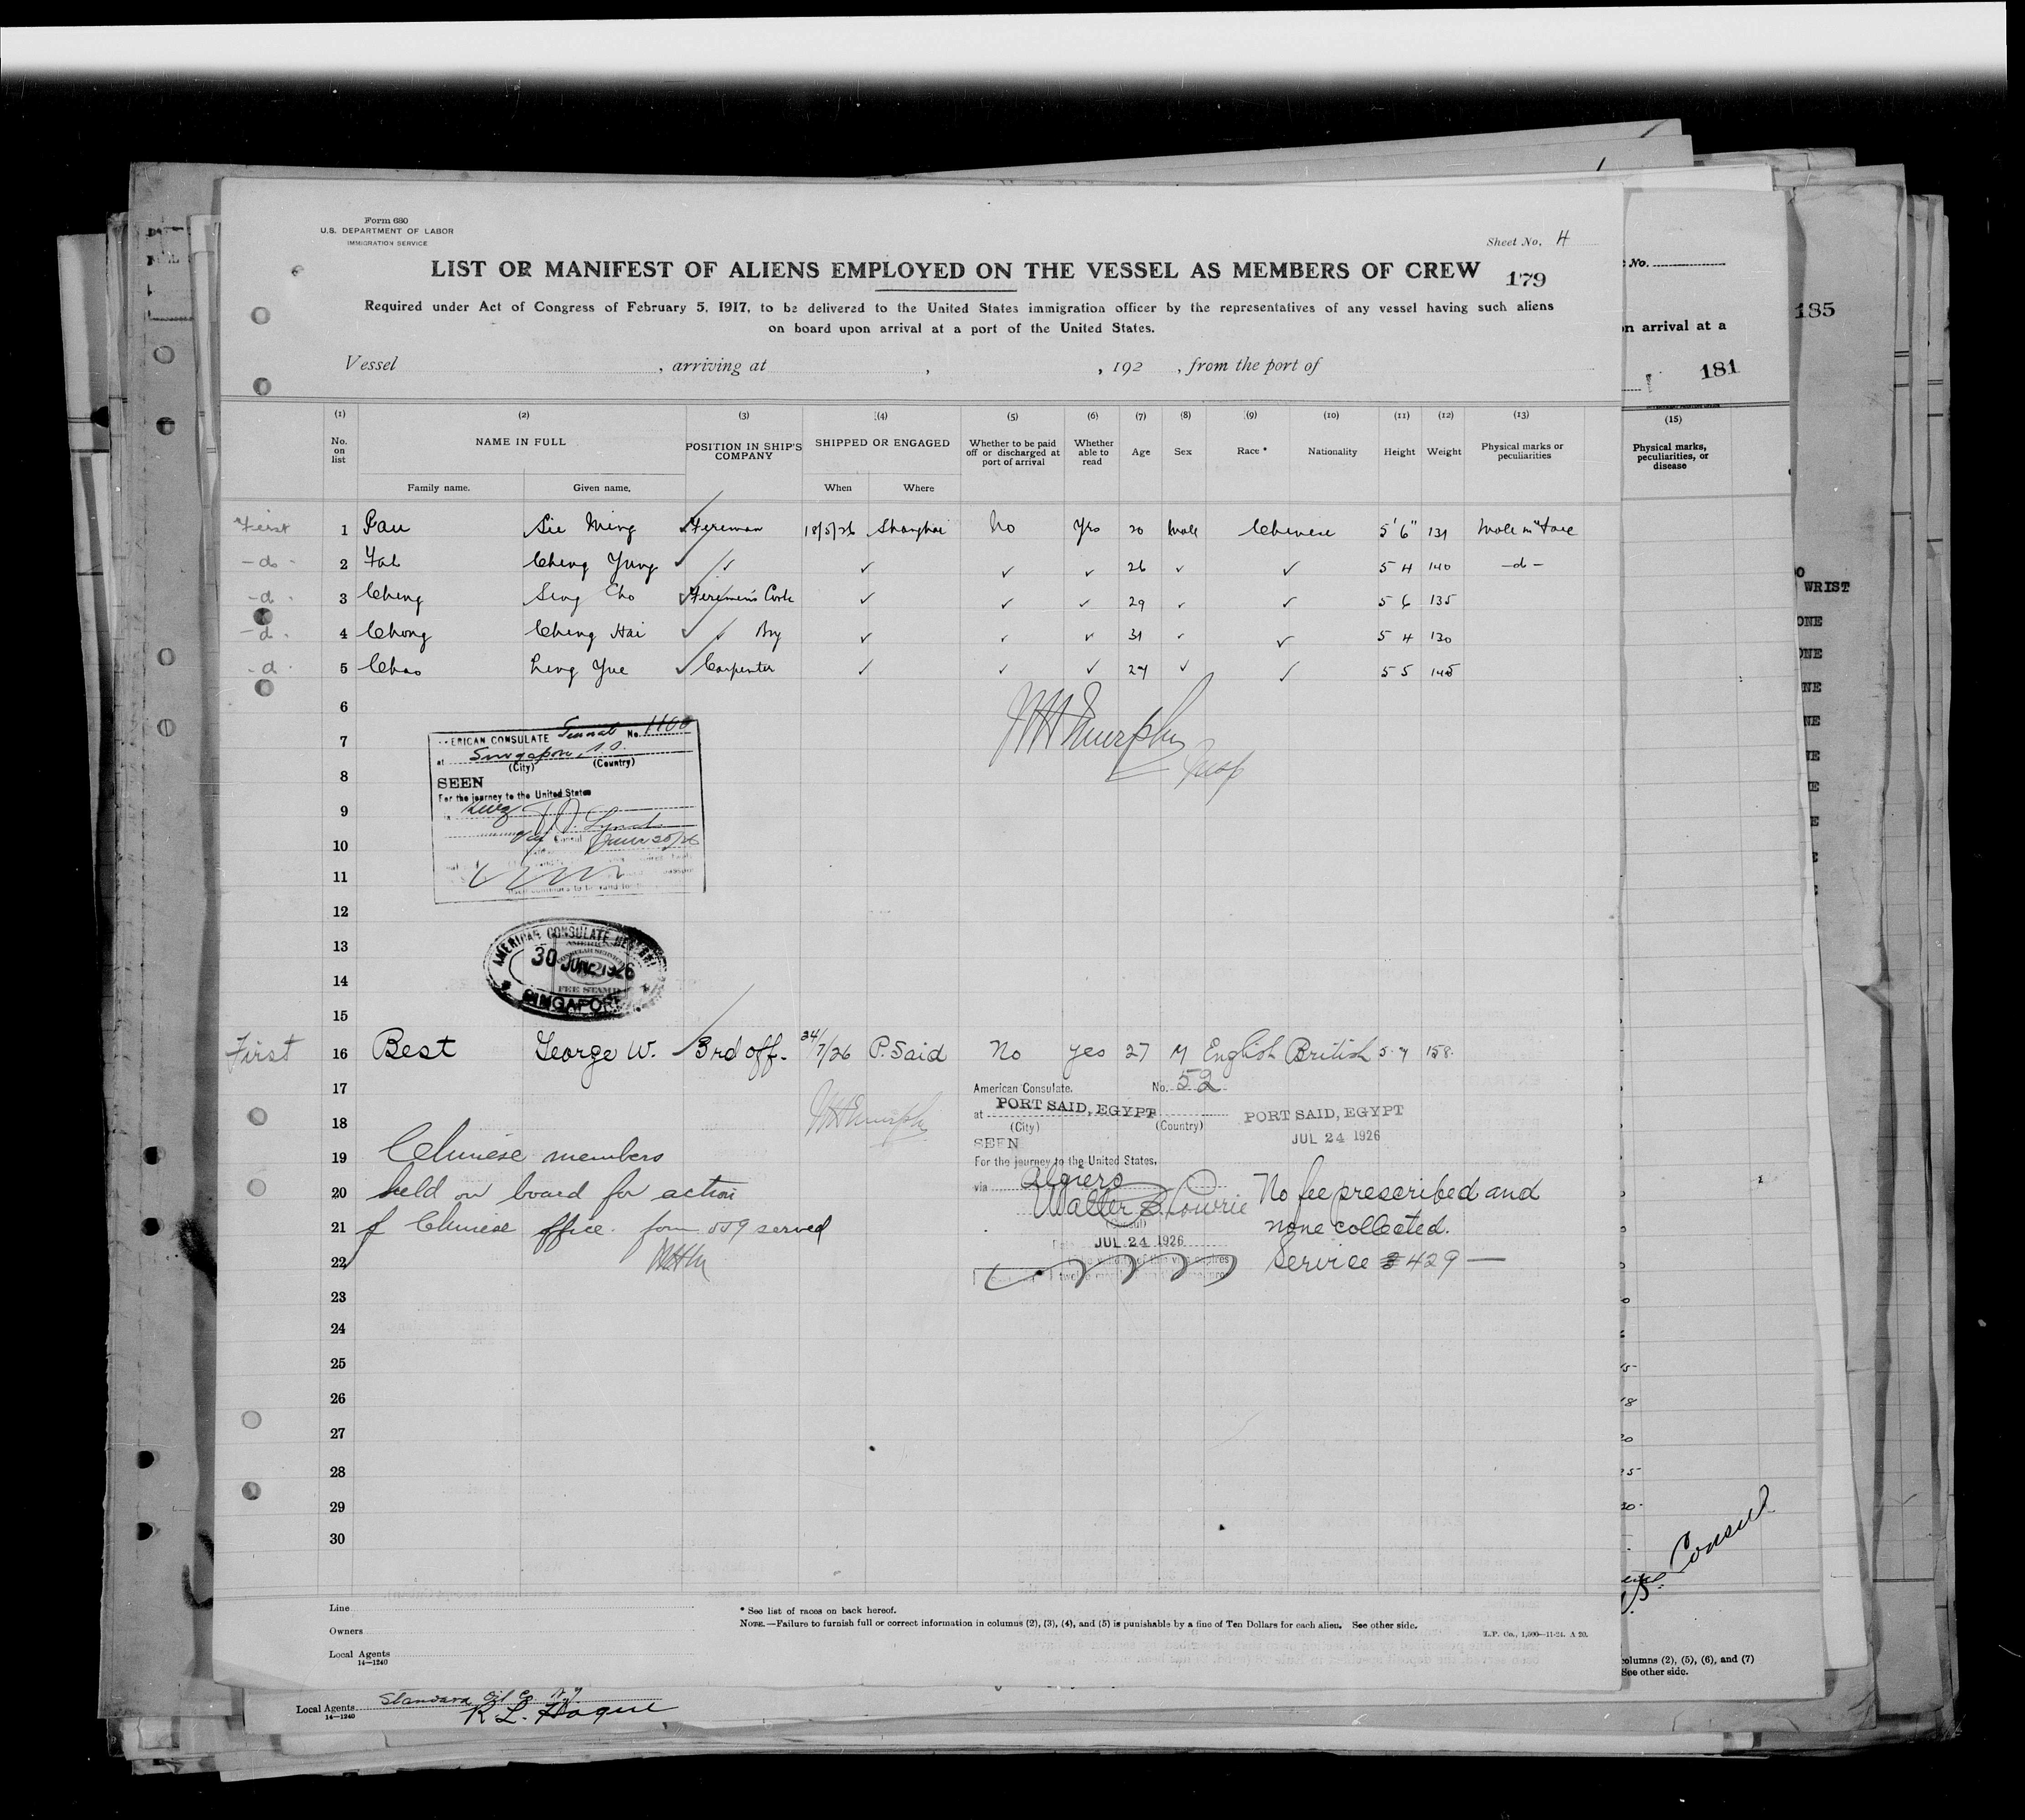 Form 680
U.S. DEPARTMENT OF LABOR
IMMIGRATION SERVICE
Sheet No. 4
LIST OR MANIFEST OF ALIENS EMPLOYED ON THE VESSEL AS MEMBERS OF CREW
179
Required under Act of Congress of February 5, 1917, to be delivered to the United States immigration officer by the representatives of any vessel having such aliens
on board upon arrival at a port of the United States.
Vessel , arriving at , , 192 , from the port of
(1) (2) (3) (4) (5) (6) (7) (8) (9) (10) (11) (12) (13)
No. on list NAME IN FULL POSITION IN SHIP'S COMPANY SHIPPED OR ENGAGED Whether to be paid off or discharged at port of arrival Whether able to read Age Sex Race * Nationality Height Weight Physical marks or peculiarities
Family name. Given name. When Where
First 1 Sie Ming Fireman 18/5/26 Shanghai No Yes 20 Male Chinese 5'6" 131 Mole in face
-do- 2 Cheng Yung 26 5 4 140 -d-
-d- 3 Cheng Seng Cho Firemen's Cook 29 5 6 135
-d- 4 Chong Cheng Hai Boy 31 5 4 130
-d- 5 Chao Leng Yue Carpenter 27 5 5 145
6
7
8
9
10
11
12
13
14
15
ERICAN CONSULATE General No. 1100
at Singapore, S.S.
(City) (Country)
SEEN
For the journey to the United States
June 30/26
AMERICAN CONSULATE GENERAL
30 JUNE 1926
FEE STAMP
SINGAPORE
WHMurphy
Insp
First 16 Best George W. 3rd off. 24/7/26 P. Said No yes 27 M English British 5.7 158.
17
18
19
20
21
22
23
24
25
26
27
28
29
30
WHMurphy
American Consulate. No. 52
at PORT SAID, EGYPT
(City) (Country)
SEEN
For the journey to the United States,
via Algiers
Walter S.
(Consul)
JUL 24 1926
PORT SAID, EGYPT
JUL 24 1926
No fee prescribed and
none collected.
Service # 429 —
Chinese members
held on board for action
of Chinese office. form 559 served
WHM
Line
Owners
Local Agents
14—1240
* See list of races on back hereof.
NOTE.—Failure to furnish full or correct information in columns (2), (3), (4), and (5) is punishable by a fine of Ten Dollars for each alien. See other side.
L.P. Co., 1,500—11-24. A 20.
Local Agents Standard Oil Co. N.J.
14—1240
K L. Hague
No.
n arrival at a
181
185
(15)
Physical marks,
peculiarities, or
disease
WRIST
Consul
columns (2), (5), (6), and (7)
See other side.